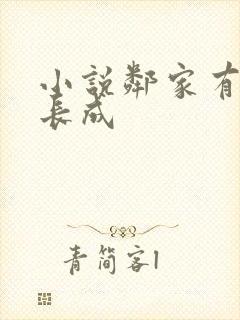 小説鄰家有
長成
青简客1